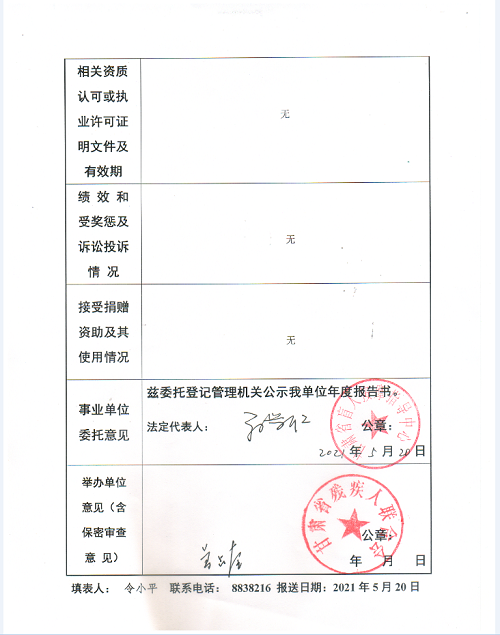 相关资质
认可或执
业许可证
明文件及
有效期
无
绩 效 和
受奖惩及
诉讼投诉
情 况
无
接受捐赠
资助及其
使用情况
无
事业单位
委托意见
兹委托登记管理机关公示我单位年度报告书。
法定代表人:
公章:
2021 年 5 月 20 日
举办单位
意见(含
保密审查
意 见)
甘肃省残疾人联合会
公章:
年 月 日
填表人: 令小平 联系电话: 8838216 报送日期: 2021 年 5 月 20 日